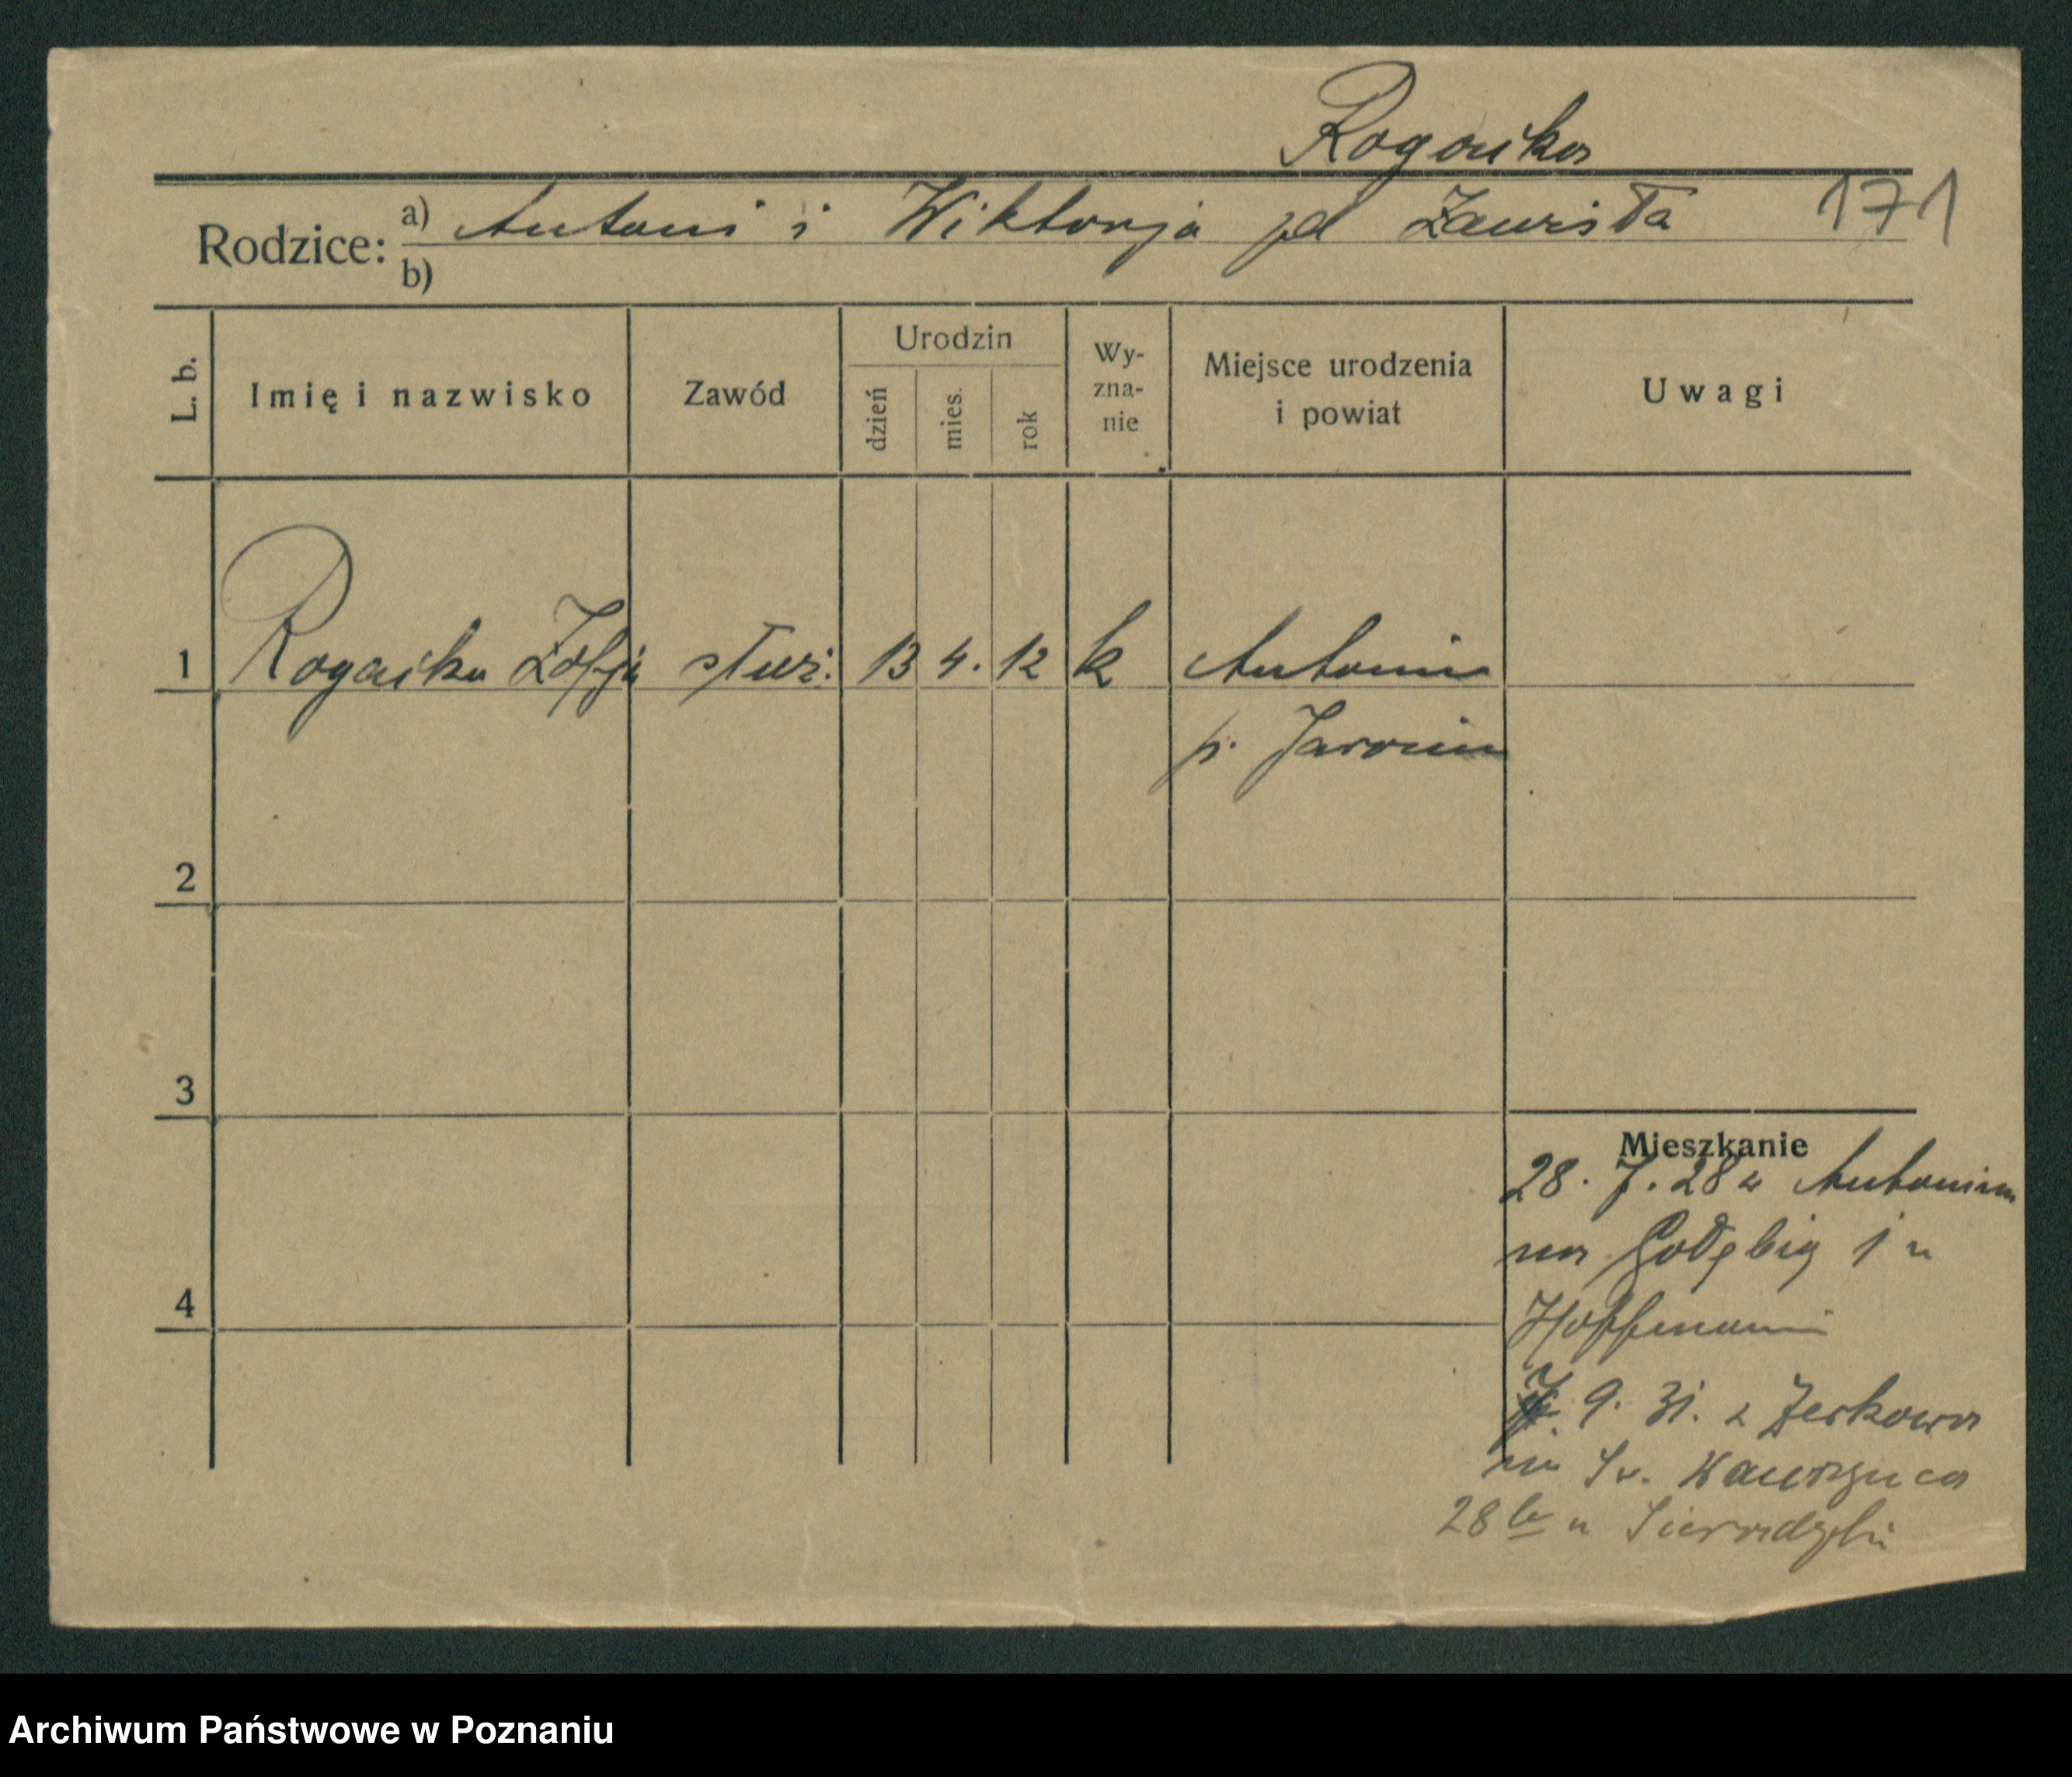 Rogacka
171
Rodzice: a) Antoni i Wiktorja zd Zawisła
b)
L. b. Imię i nazwisko Zawód Urodzin dzień mies. rok Wy-zna-nie Miejsce urodzenia i powiat Uwagi
1 Rogacka Zofja służ. 13 4. 12 k Antonin
p. Jarocin
2
3
Mieszkanie
28. 7. 28 z Antonina
na Gołębią 1 u
4
Hoffmann
9. 31. z Żerkowa
na Św. Wawrzyńca
28 u
Archiwum Państwowe w Poznaniu